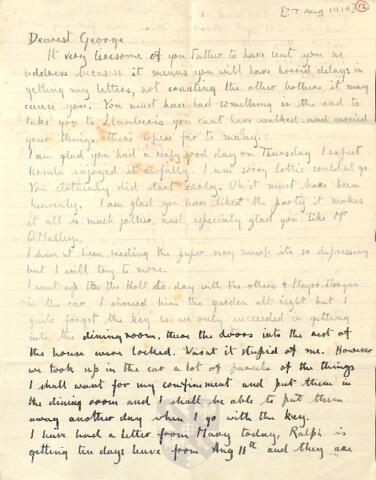 [27 Aug 1915] 12
Dearest George
It very tiresome of you Father to have sent you
address because it means you will have horrid delays in
getting my letters, not counting the other bothers it may
cause you. You must have had something in the end to
take you to Llanberis you cant have walked and carried
your things there were far to many.
I am glad you had a really good day on Thursday I expect
enjoyed it awfully. I am sorry Lottie couldnt go.
You did start early. Oh it must have been
heavenly. I am glad you have liked the party it makes
it all so much jollier, and especially glad you like Mr
O'Malley.
I havnt been reading the paper very much its so depressing
but I will try to more.
I went up to the Holt to-day with the others & Major Morgan
in the car I showed him the garden all right but I
quite forgot the key so we only succeeded in getting
into the dining room, the doors into the rest of
the house were locked. Wasnt it stupid of me. However
we took up in the car a lot of parcels of the things
I shall want for my confinement and put them in
the dining room and I shall be able to put them
away another day when I go with the key.
I have had a letter from Mary today, Ralph is
getting ten days leave from Aug 11th and they are